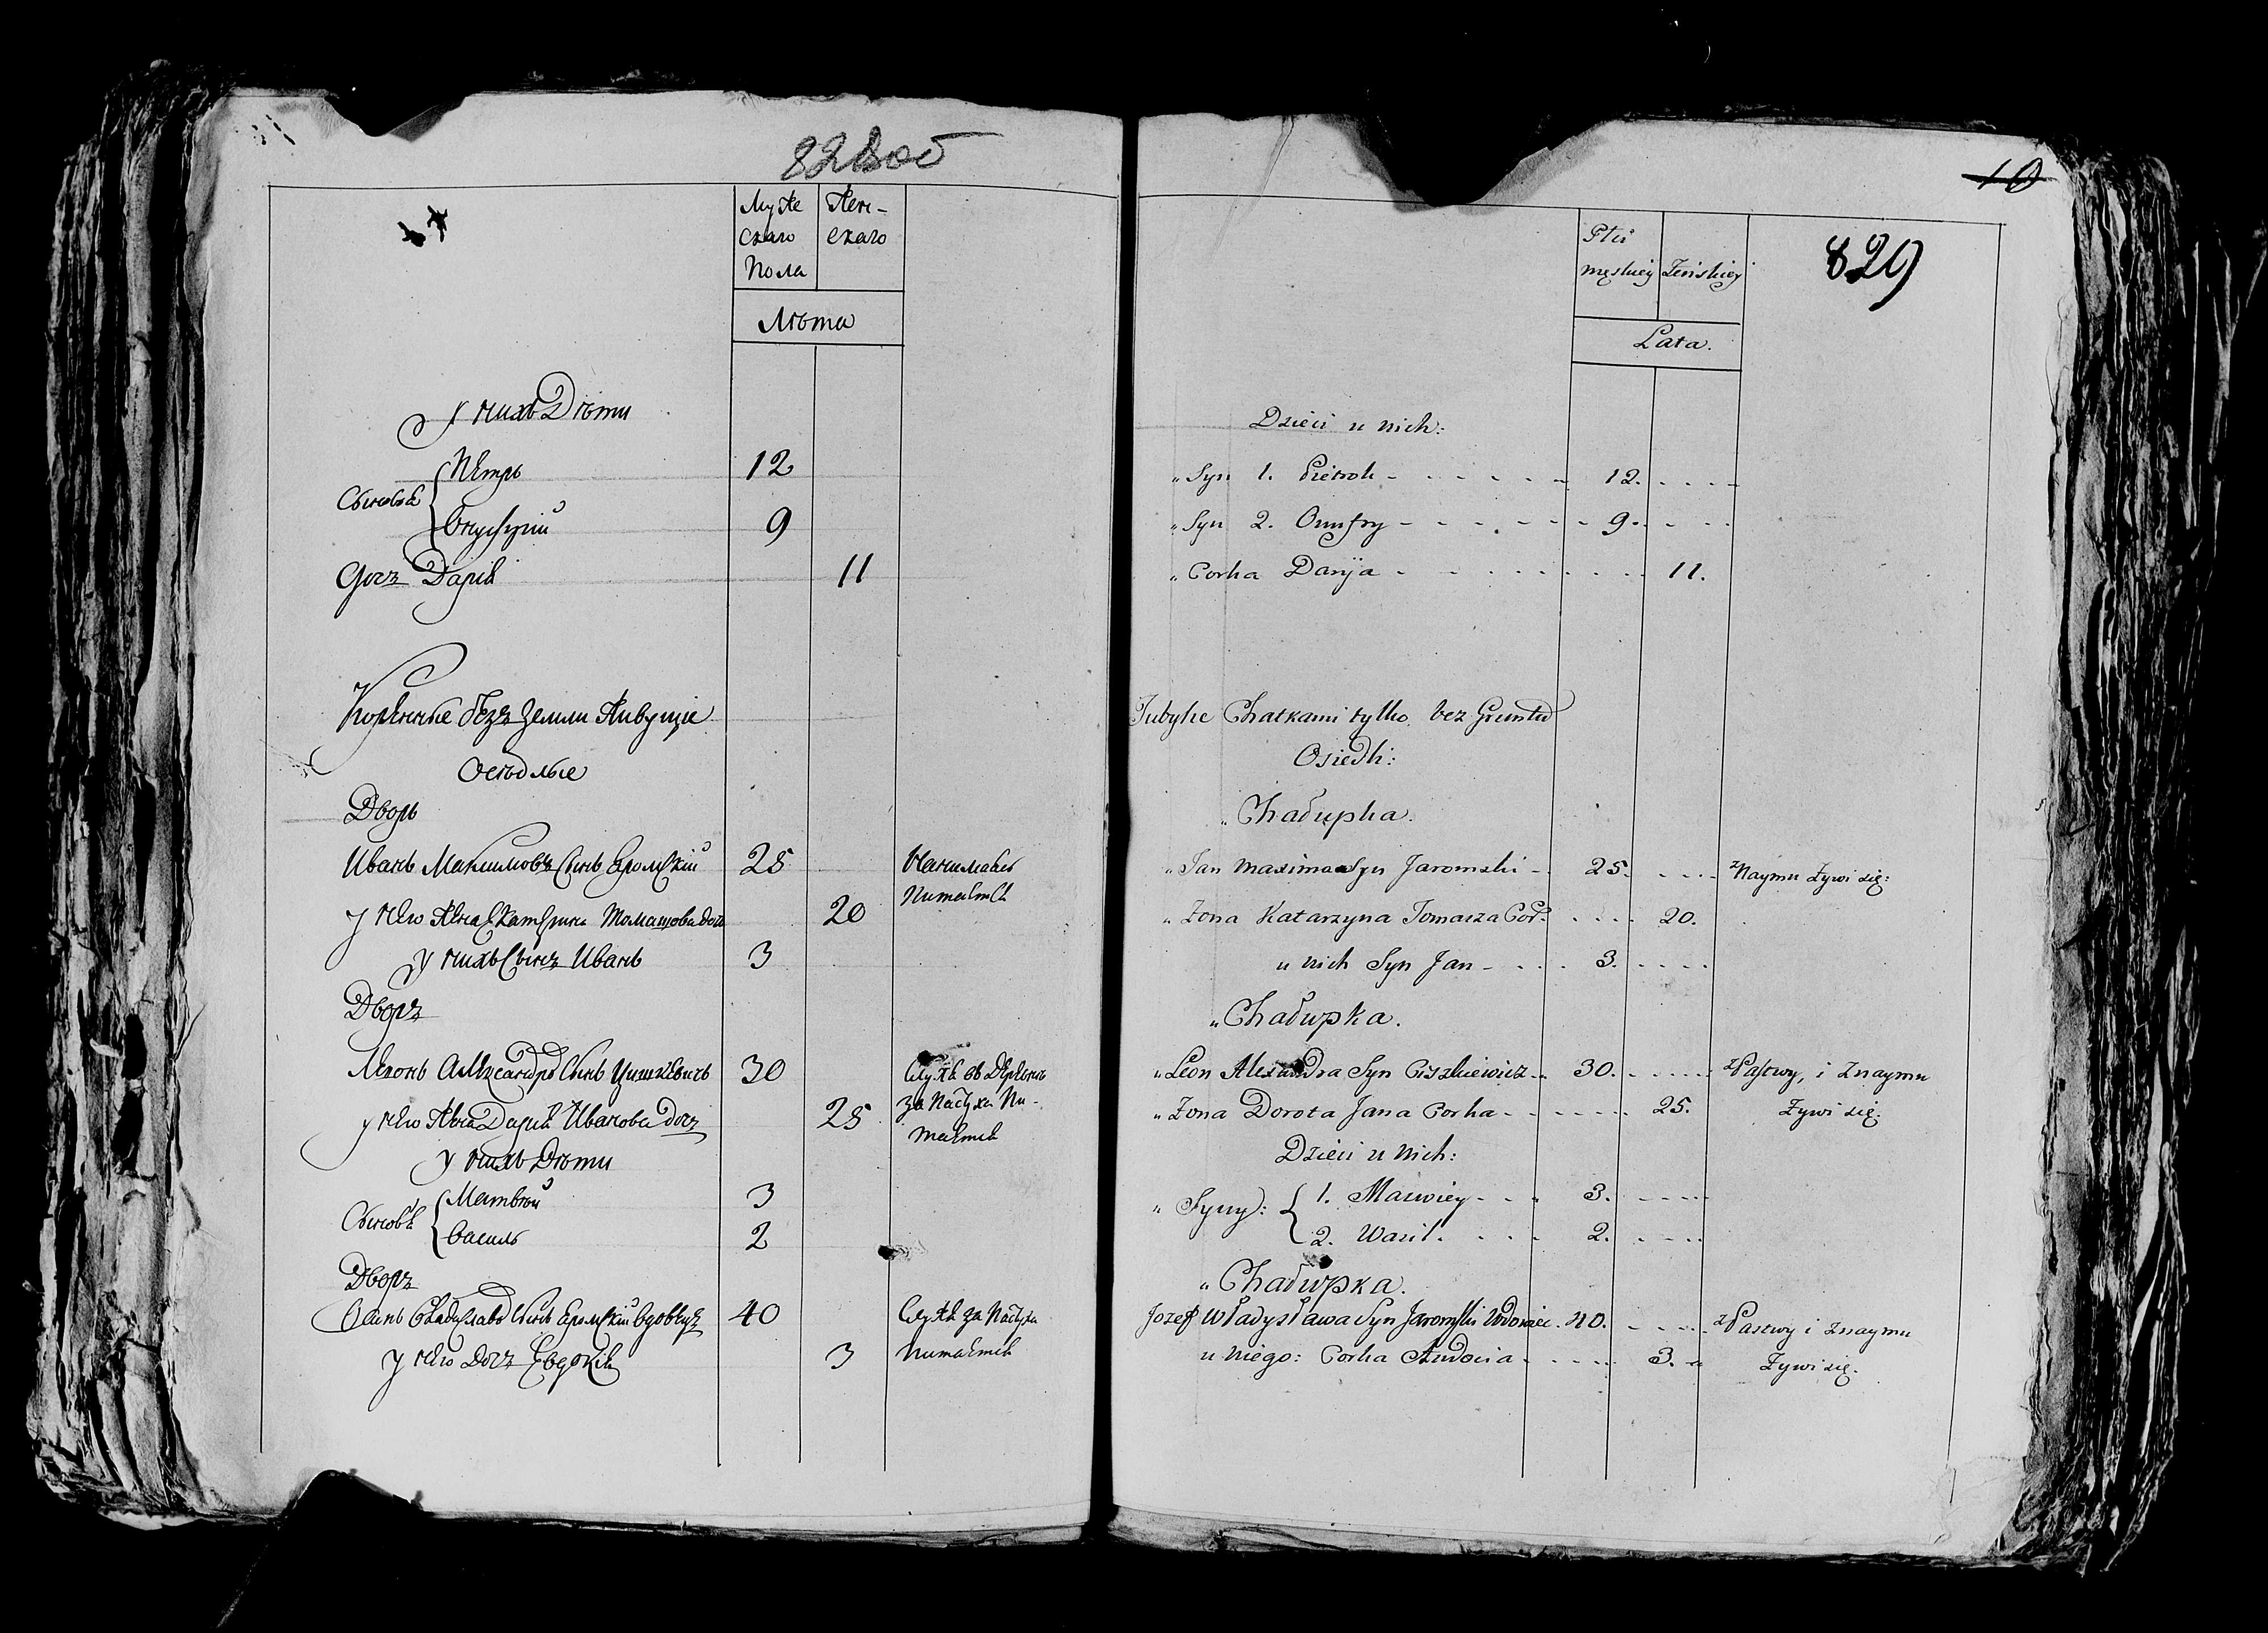 828 об
Муже Жен-
скаго скаго
Пола
Лѣта
у нихъ Дѣти
Сыновья
Петръ 12
Онуфрий 9
Дочъ Дария 11
Коренные безъ земли живущие
Осѣдлые
Дворъ
Иванъ Максимовъ Сынъ Яромский 25 Нанимаясь
Питается
у него Жена Катерина Томашова дочь 20
у нихъ Сынъ Иванъ 3
Дворъ
Леонъ Александръ Сынъ Цишкевичъ 30 Служа въ Деревнѣ
за Пастуха Пи-
тается
у него Жена Дария Иванова дочъ 25
у нихъ Дѣти
Сыновья
Матвей 3
Василь 2
Дворъ
Осипъ Владиславъ Сынъ Яромский вдовецъ 40 Служа за Пастуха
Питается
у него Дочъ Евдокия 3
10
829
Płci
męskiey Żeńskiey
Lata.
Dzieci u nich:
„ Syn 1. Pietroh - 12.
„ Syn 2. Onufry - 9.
„ Corka Darija - 11.
Tubylce Chatkami tylko bez Gruntu
Osiedli:
„ Chałupka.
„ Jan Maxima Syn Jaromski - 25. z Naymu żywi się:
„ Żona Katarzyna Tomasza Cor: 20.
u nich Syn Jan - 3.
„ Chałupka.
„ Leon Alexandra Syn Ciszkiewicz - 30. z Pastwy, i z naymu
żywi się:
„ Żona Dorota Jana Corka - 25.
Dzieci u nich:
„ Syny: { 1. Maćwiey - 3.
2. Wasil. 2.
„ Chałupka.
Jozef Władysława Syn Jaromski Wdowiec. 40. z Pastwy i z naymu
żywi się.
u niego: Corka Awdocia - 3.